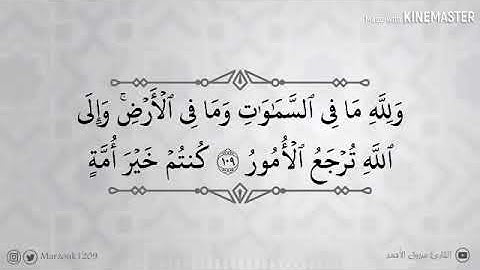 Made with KINEMASTER
وَلِلَّهِ مَا فِي ٱلسَّمَٰوَٰتِ وَمَا فِي ٱلۡأَرۡضِۚ وَإِلَى
ٱللَّهِ تُرۡجَعُ ٱلۡأُمُورُ ١٠٩ كُنتُمۡ خَيۡرَ أُمَّةٍ
Marzouk1209
القارئ مرزوق الاحمد